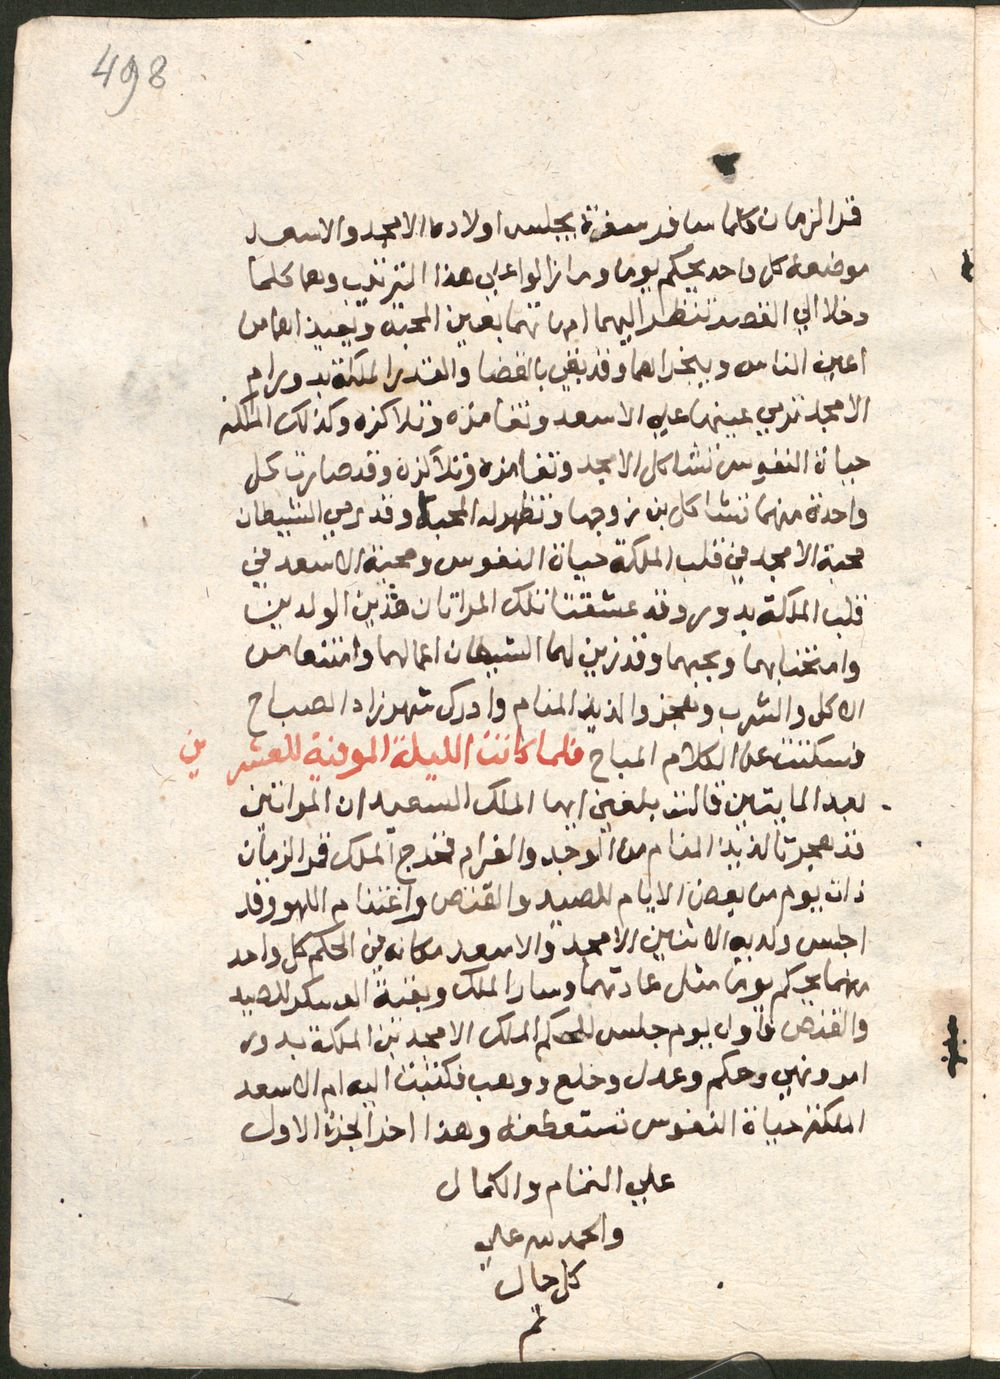 498
قمر الزمان كلما سافر سفرة يجلس اولاده الامجد والاسعد
موضعه كل واحد يحكم يوما وما زالوا علي هذا الترتيب وهما كلما
دخلا الي القصر تنظر اليهما امهاتهما بعين المحبة وتعيذاهما من
اعين الناس ويبخراهما وقد بقي بالقضا والقدر الملكة بدور ام
الامجد ترمي عينها علي الاسعد وتغامزه وتلاكزه وكذلك الملكة
حياة النفوس تشاكل الامجد وتغامزه وتلاكزه وقد صارت كل
واحدة منهما تشاكل بن زوجها وتظهر له المحبة وقد رمي الشيطان
محبة الامجد في قلب الملكة حياة النفوس ومحبة الاسعد في
قلب الملكة بدور وقد عشقتا تلك المراتان هذين الولدين
وامتحنا بهما وبحبهما وقد زين لهما الشيطان اعمالهما وامتنعا من
الاكل والشرب وهجر والذيذ المنام وادرك شهرزاد الصباح
فسكتت عن الكلام المباح فلما كانت الليلة الموفية للعشرين
بعد المايتين قالت بلغني ايها الملك السعيد ان المراتين
قد هجرتا لذيذ المنام من الوجد والغرام فخرج الملك قمر الزمان
ذات يوم من بعض الايام للصيد والقنص واغتنام اللهو وقد
اجلس ولديه الاثنين الامجد والاسعد مكانه في الحكم كل واحد
منهما يحكم يوما مثل عادتهما وسار الملك وبقية العسكر للصيد
والقنص فاول يوم جلس للحكم الملك الامجد بن الملكة بدور
امر ونهي وحكم وعدل وخلع ووهب فكتبت اليه ام الاسعد
الملكة حياة النفوس تستعطفه وهذا اخر الجزء الاول
علي التمام والكمال
والحمد لله علي
كل حال
تم